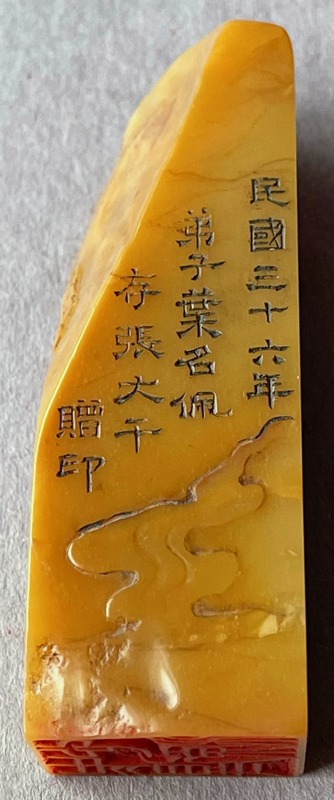 民國三十六年
弟子葉名佩
存張大千
贈印